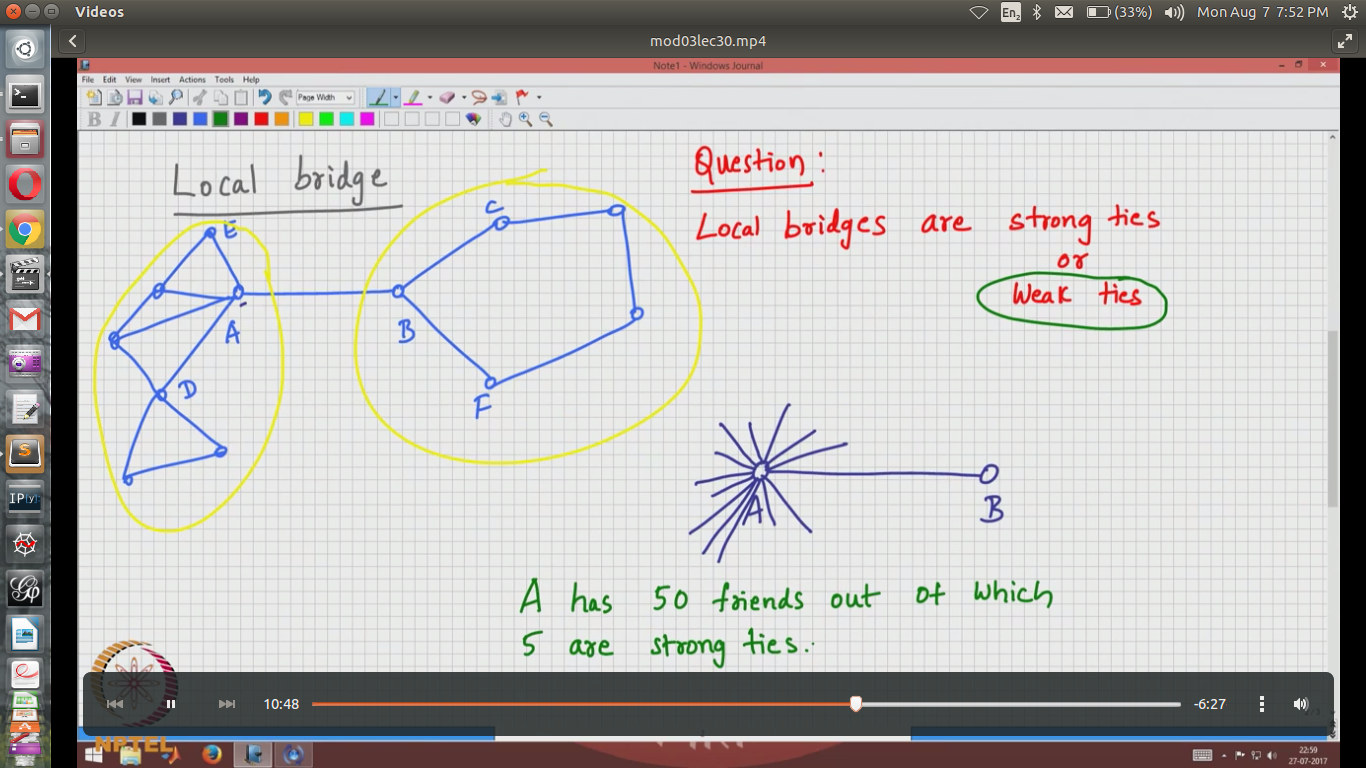 Videos
En2
(33%)
Mon Aug 7 7:52 PM
mod03lec30.mp4
Note1 - Windows Journal
File Edit View Insert Actions Tools Help
Page Width
B I
Local bridge
E
A
D
B
C
F
Question:
Local bridges are strong ties
or
Weak ties
A
B
A has 50 friends out of which
5 are strong ties.
10:48
-6:27
NPTEL
22:59
27-07-2017
IP[y]: